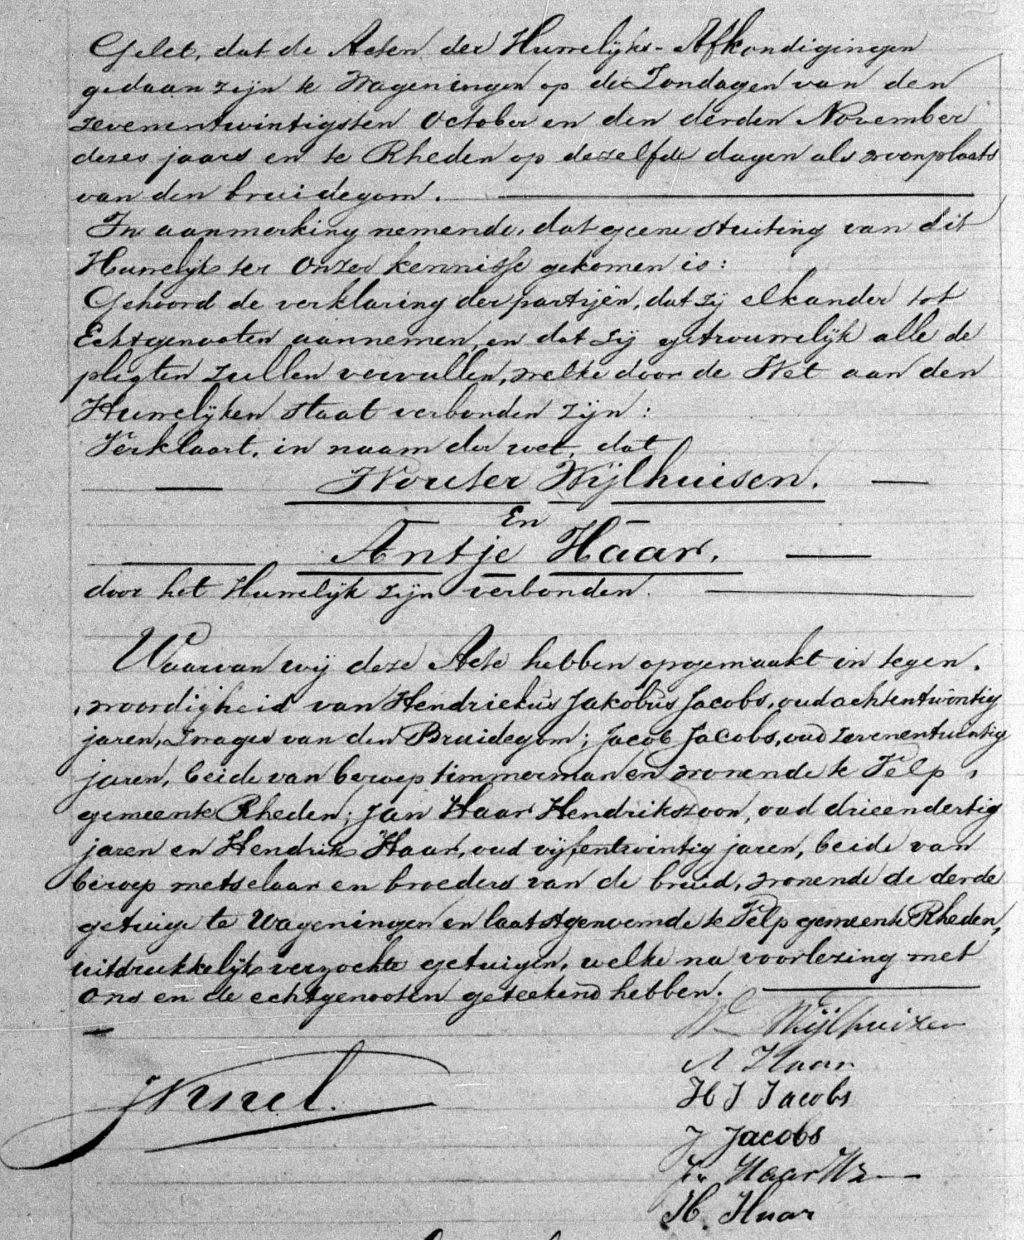 Gelet, dat de Acten der Huwelijks-Afkondigingen
gedaan zijn te Wageningen op de Zondagen van den
zevenentwintigsten October en den derden November
dezes jaars en te Rheden op dezelfde dagen als woonplaats
van den bruidegom.
In aanmerking nemende, dat geene stuiting van dit
Huwelijk ter onzer kennisse gekomen is:
Gehoord de verklaring der partijen, dat zij elkander tot
Echtgenooten aannemen, en dat zij getrouwelijk alle de
pligten zullen vervullen, welke door de Wet aan den
Huwelijken staat verbonden zijn:
Verklaart, in naam der wet, dat
Wouter Wijlhuisen.
En
Antje Haar.
door het Huwelijk zijn verbonden.
Waarvan wij deze Acte hebben opgemaakt in tegen-
woordigheid van Hendriekus Jakobus Jacobs, oud achtentwintig
jaren, zwager van den Bruidegom; Jacob Jacobs, oud zevenentwintig
jaren, beide van beroep timmerman en wonende te Velp,
gemeente Rheden; Jan Haar Hendrikszoon, oud drieendertig
jaren en Hendrik Haar, oud vijfentwintig jaren, beide van
beroep metselaar en broeders van de bruid, wonende de derde
getuige te Wageningen en laatstgenoemde te Velp gemeente Rheden,
uitdrukkelijk verzochte getuigen, welke na voorlezing met
ons en de echtgenooten geteekend hebben.
W Wijlhuizen
A Haar
H J Jacobs
J Jacobs
Jn Haar Hz
H. Haar